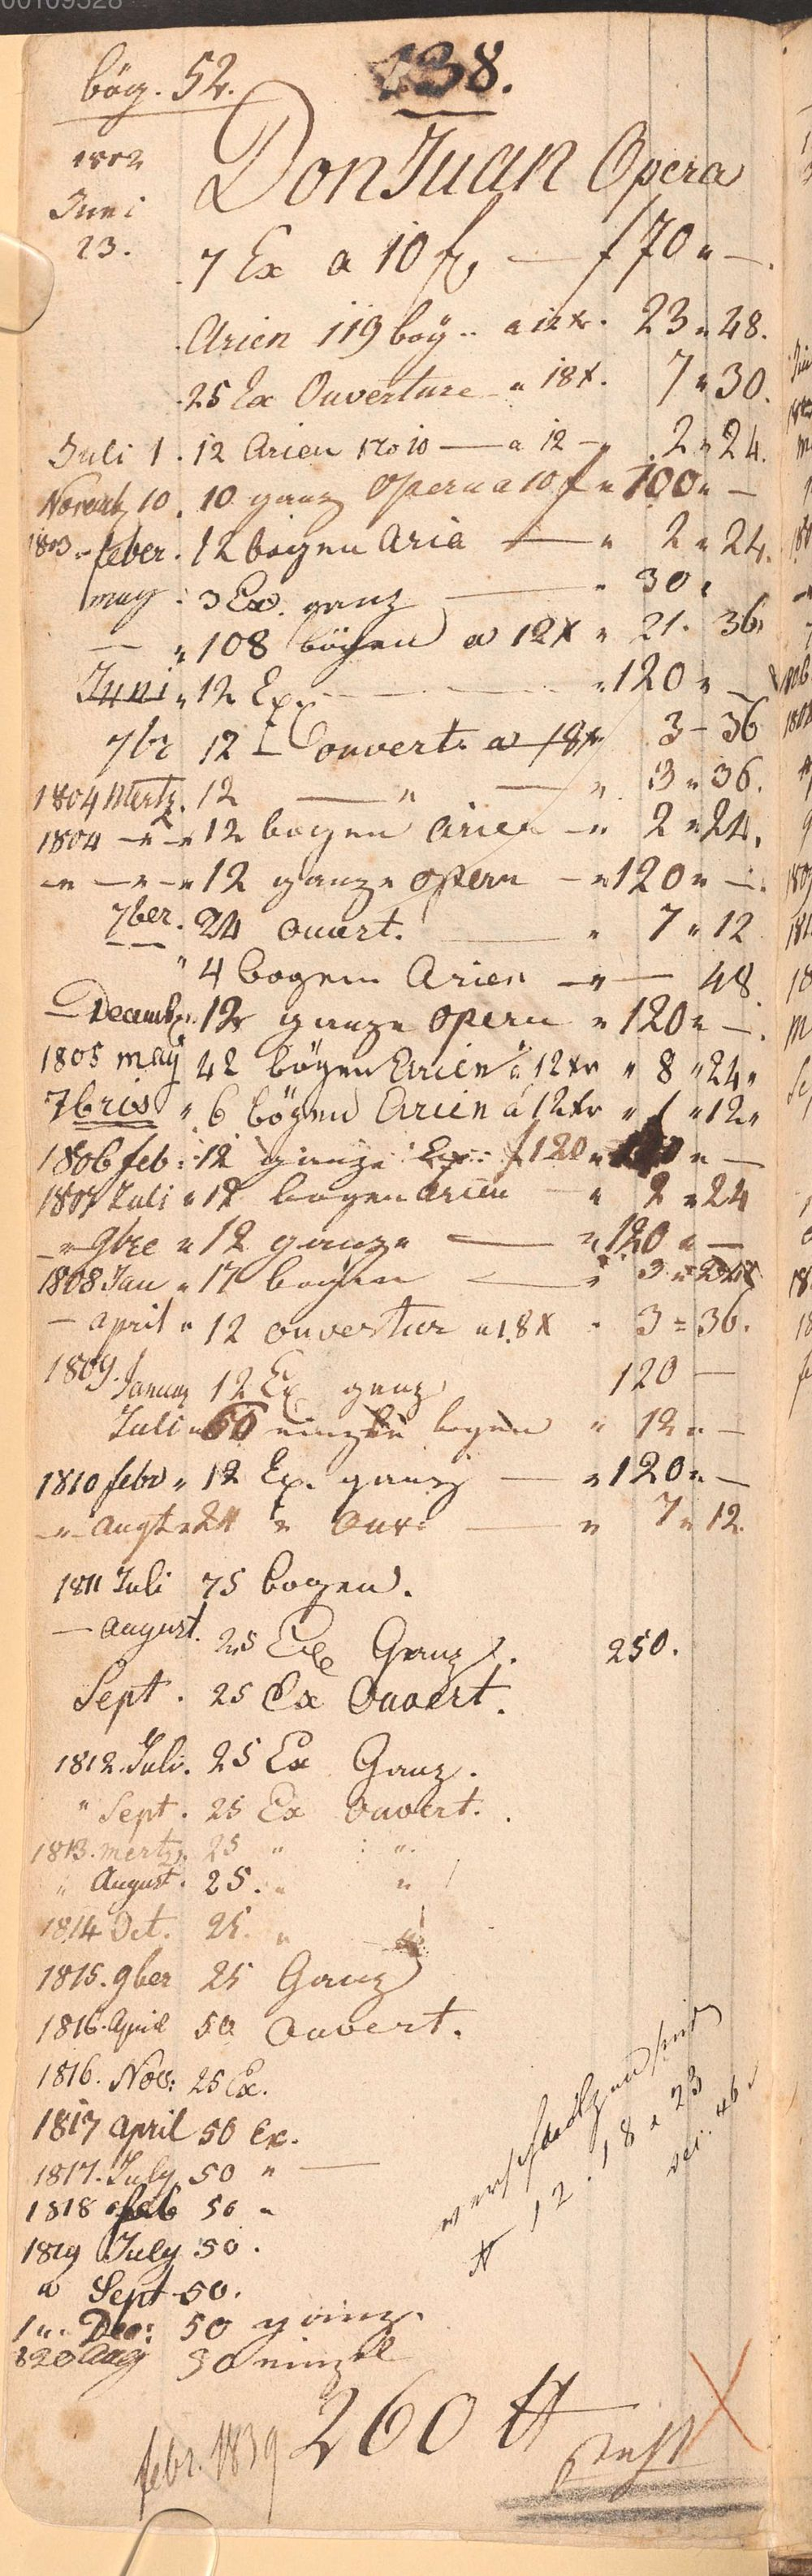 bög. 52.
138.
1802
Don Juan Opera
Juni
23.
7 Ex a 10 f — f 70 " —.
Arien 119 bög .. a 12 xr. 23 " 48.
25 Ex Ouverture " 18 x. 7 " 30.
Juli 1. 12 Arien No 10 — a 12 — 2 " 24.
Novemb 10. 10 ganz Opern a 10 f " 100 " —
1803 – feber. 12 bogen Aria — " 2 " 24.
may. 3 Ex. ganz — " 30 "
— " 108 bögen a 12 X " 21. 36
Juni " 12 Ex — " 120 " —
7br 12 – Ouvert. a 18 x 3 – 36
1804 Mertz. 12 — " — " 3 " 36.
1804 – " – 12 bogen Arien — " 2 " 24.
– " – " – 12 ganze opern — " 120 " —.
7ber. 24 Ouvert. — " 7 " 12
" 4 bogen Arien — " — 48
— Decemb. 12 ganze Opern " 120 " —.
1805 may 42 bögen Arien a 12 xr " 8 " 24 "
7bris " 6 bögen Arien á 12 xr " 1 " 12 "
1806 feb: 12 ganze Ex: f 120 " —
1807 Juli " 12 bogen arien — " 2 " 24
– " 9bre " 12 ganze — " 120 " —
1808 Jan " 17 bogen — " 3 " 24
— april " 12 ouvertur a 18 X " 3 = 36.
1809. Januar 12 Ex ganz 120 —
Juli " 60 einzeln bogen " 12 " —
1810 febr " 12 Ex. ganz — " 120 " —
– " – Augt " 24 " Ouv: — " 7 " 12.
1811 Juli 75 bogen.
— August. 25 Exe Ganz. 250.
Sept. 25 Ex Ouvert.
1812. Juli. 25 Ex Ganz.
" Sept. 25 Ex Ouvert.
1813. mertz. 25 " "
" August. 25. " "
1814 Oct. 25. "
1815. 9ber 25 Ganz
1816. April 50 Ouvert.
1816. Nov: 25 Ex.
1817 April 50 Ex.
1817. July 50 " —
1818 feb 50 "
1819 July 50.
" Sept 50.
1 ". Dec: 50 ganz.
820 Aug 50 einzel
12. 18 " 23
46
febr. 1839
260 ℔